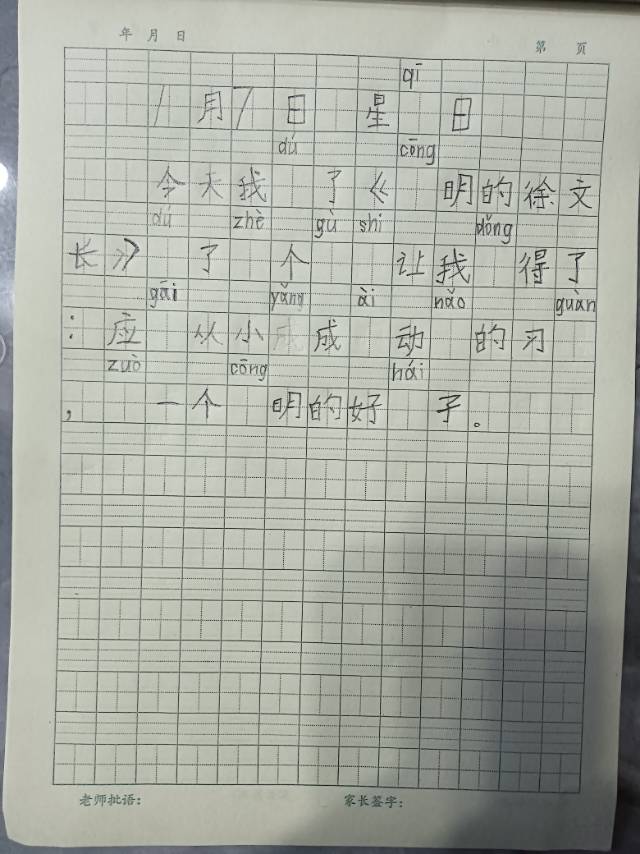 年 月 日
第 页
qī
1月7日 星 日
dú cōng
今天我 了《 明的徐文
dú zhè gù shi dǒng
长》 了 个 让我 得了
gāi yǎng ài nǎo guàn
:应 从小 成 动 的习
zuò cōng hái
, 一个 明的好 子。
老师批语:
家长签字: